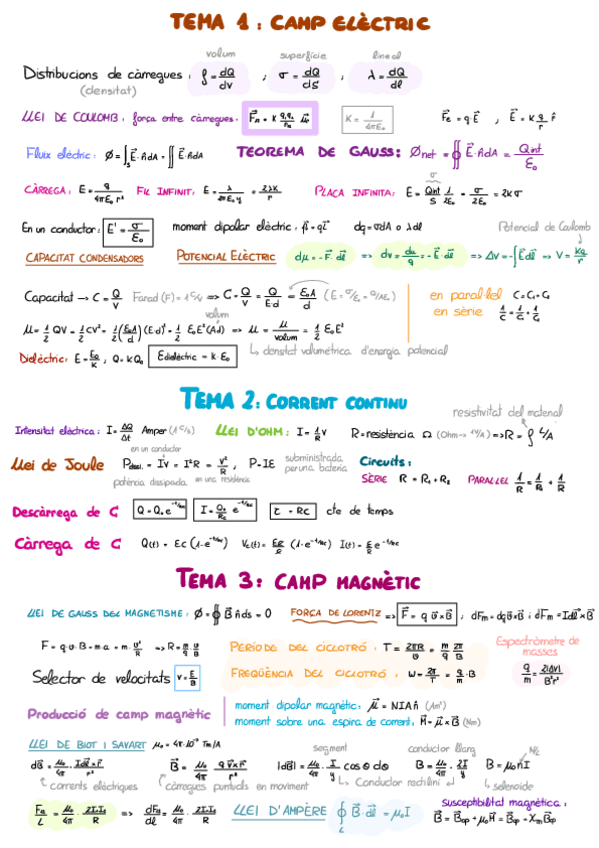 TEMA 1 : CAMP ELÈCTRIC
volum superfície lineal
Distribucions de càrregues : ρ = dQ/dv ; σ = dQ/dS ; λ = dQ/dl
(densitat)
LLEI DE COULOMB : força entre càrregues. K = 1/4πε₀ F⃗e = q·E⃗ , E⃗ = K q/r r̂
Fluix elèctric : Ø = ∫s E⃗·n̂ dA = ∬ E⃗·n̂dA TEOREMA DE GAUSS: Ønet = ∯ E⃗·n̂dA = Qint/ε₀
σ
CÀRREGA : E = q/4πε₀r² FIL INFINIT: E = λ/2πε₀y = 2λK/r PLACA INFINITA: E = Qint/S 1/2ε₀ = σ/2ε₀ = 2Kσ
En un conductor: E' = σ/ε₀ moment dipolar elèctric : p⃗ = qL⃗ dq = σdA o λdl Potencial de Coulomb
CAPACITAT CONDENSADORS POTENCIAL ELÈCTRIC dμ = -F⃗·dl⃗ => dv = du/q = -E⃗·dl⃗ => Δv = -∫E⃗dl⃗ => V = Kq/r
Capacitat → C = Q/V Farad (F) = 1 C/V => C = Q/V = Q/E·d = ε₀A/d (E = σ/ε₀ = Q/Aε₀) en paral·lel C = C₁+C₂
volum en sèrie 1/C = 1/C₁ + 1/C₂
μ = 1/2 QV = 1/2 CV² = 1/2 (ε₀A/d)(E·d)² = 1/2 ε₀E²(A·d) => μ = μ/volum = 1/2 ε₀E²
Dielèctric: E = E₀/K ; Q = KQ₀ Edielèctric = K·E₀ ↳ densitat volumètrica d'energia potencial
TEMA 2: CORRENT CONTINU
resistivitat del material
Intensitat elèctrica : I = ΔQ/Δt Amper (1 C/s) LLEI D'OHM : I = 1/R V R = resistència Ω (Ohm → 1V/A) => R = ρ L/A
en un conductor
Llei de Joule Pdissi. = IV = I²R = V²/R , P = Iε subministrada per una bateria Circuits :
potència dissipada en una resistència SÈRIE R = R₁ + R₂ PARAL·LEL 1/R = 1/R₁ + 1/R
Descàrrega de C Q = Q₀ e^-t/RC I = Q₀/RC e^-t/RC τ = RC cte de temps
Càrrega de C Q(t) = εC (1-e^-t/RC) Vc(t) = εR/R (1-e^-t/RC) I(t) = ε/R e^-t/RC
TEMA 3: CAMP MAGNÈTIC
LLEI DE GAUSS DEL MAGNETISME : Ø = ∮ B⃗ n̂ ds = 0 FORÇA DE LORENTZ => F⃗ = q v⃗×B⃗ ; dFm = dq v⃗×B⃗ ; dFm = Idl⃗×B⃗
F = q·v·B = m·a = m· v²/R => R = m/q v/B PERÍODE DEL CICLOTRÓ : T = 2πR/v = m/q 2π/B Espectròmetre de masses
Selector de velocitats v = E/B FREQÜÈNCIA DEL CICLOTRÓ : ω = 2π/T = q/m·B q/m = 2|ΔV|/B²r²
Producció de camp magnètic moment dipolar magnètic: μ⃗ = NIA n̂ (Am²)
moment sobre una espira de corrent: M⃗ = μ⃗×B⃗ (Nm)
LLEI DE BIOT I SAVART μ₀ = 4π·10⁻⁷ Tm/A
segment conductor llarg N/L
dB⃗ = μ₀/4π · Idl⃗×r̂/r² B⃗ = μ₀/4π q v⃗×r̂/r² |dB| = μ₀/4π · I/y cos θ dθ B = μ₀/4π · 2I/y B = μ₀nI
↳ corrents elèctriques càrregues puntuals en moviment ↳ Conductor rectilini ↳ solenoide
= μ₀/4π · 2I₁I₂/R => = μ₀/4π · 2I₁I₂/R LLEI D'AMPÈRE ∮L B⃗·dl⃗ = μ₀I
susceptibilitat magnètica :
B⃗ = B⃗ap + μ₀M⃗ = B⃗ap + χm B⃗ap